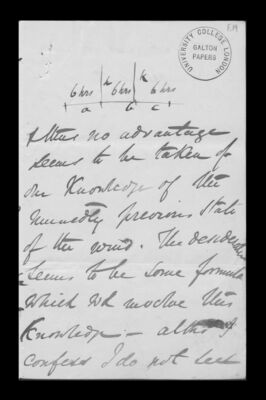 UNIVERSITY COLLEGE LONDON
GALTON PAPERS
6 hrs 6 hrs 6 hrs
a b c
& thus no advantage
seems to be taken of
our Knowledge of the
immedtly previous state
of the wind. The desideratum
seems to be some formula
which wd involve this
Knowledge – altho' I
confess I do not see